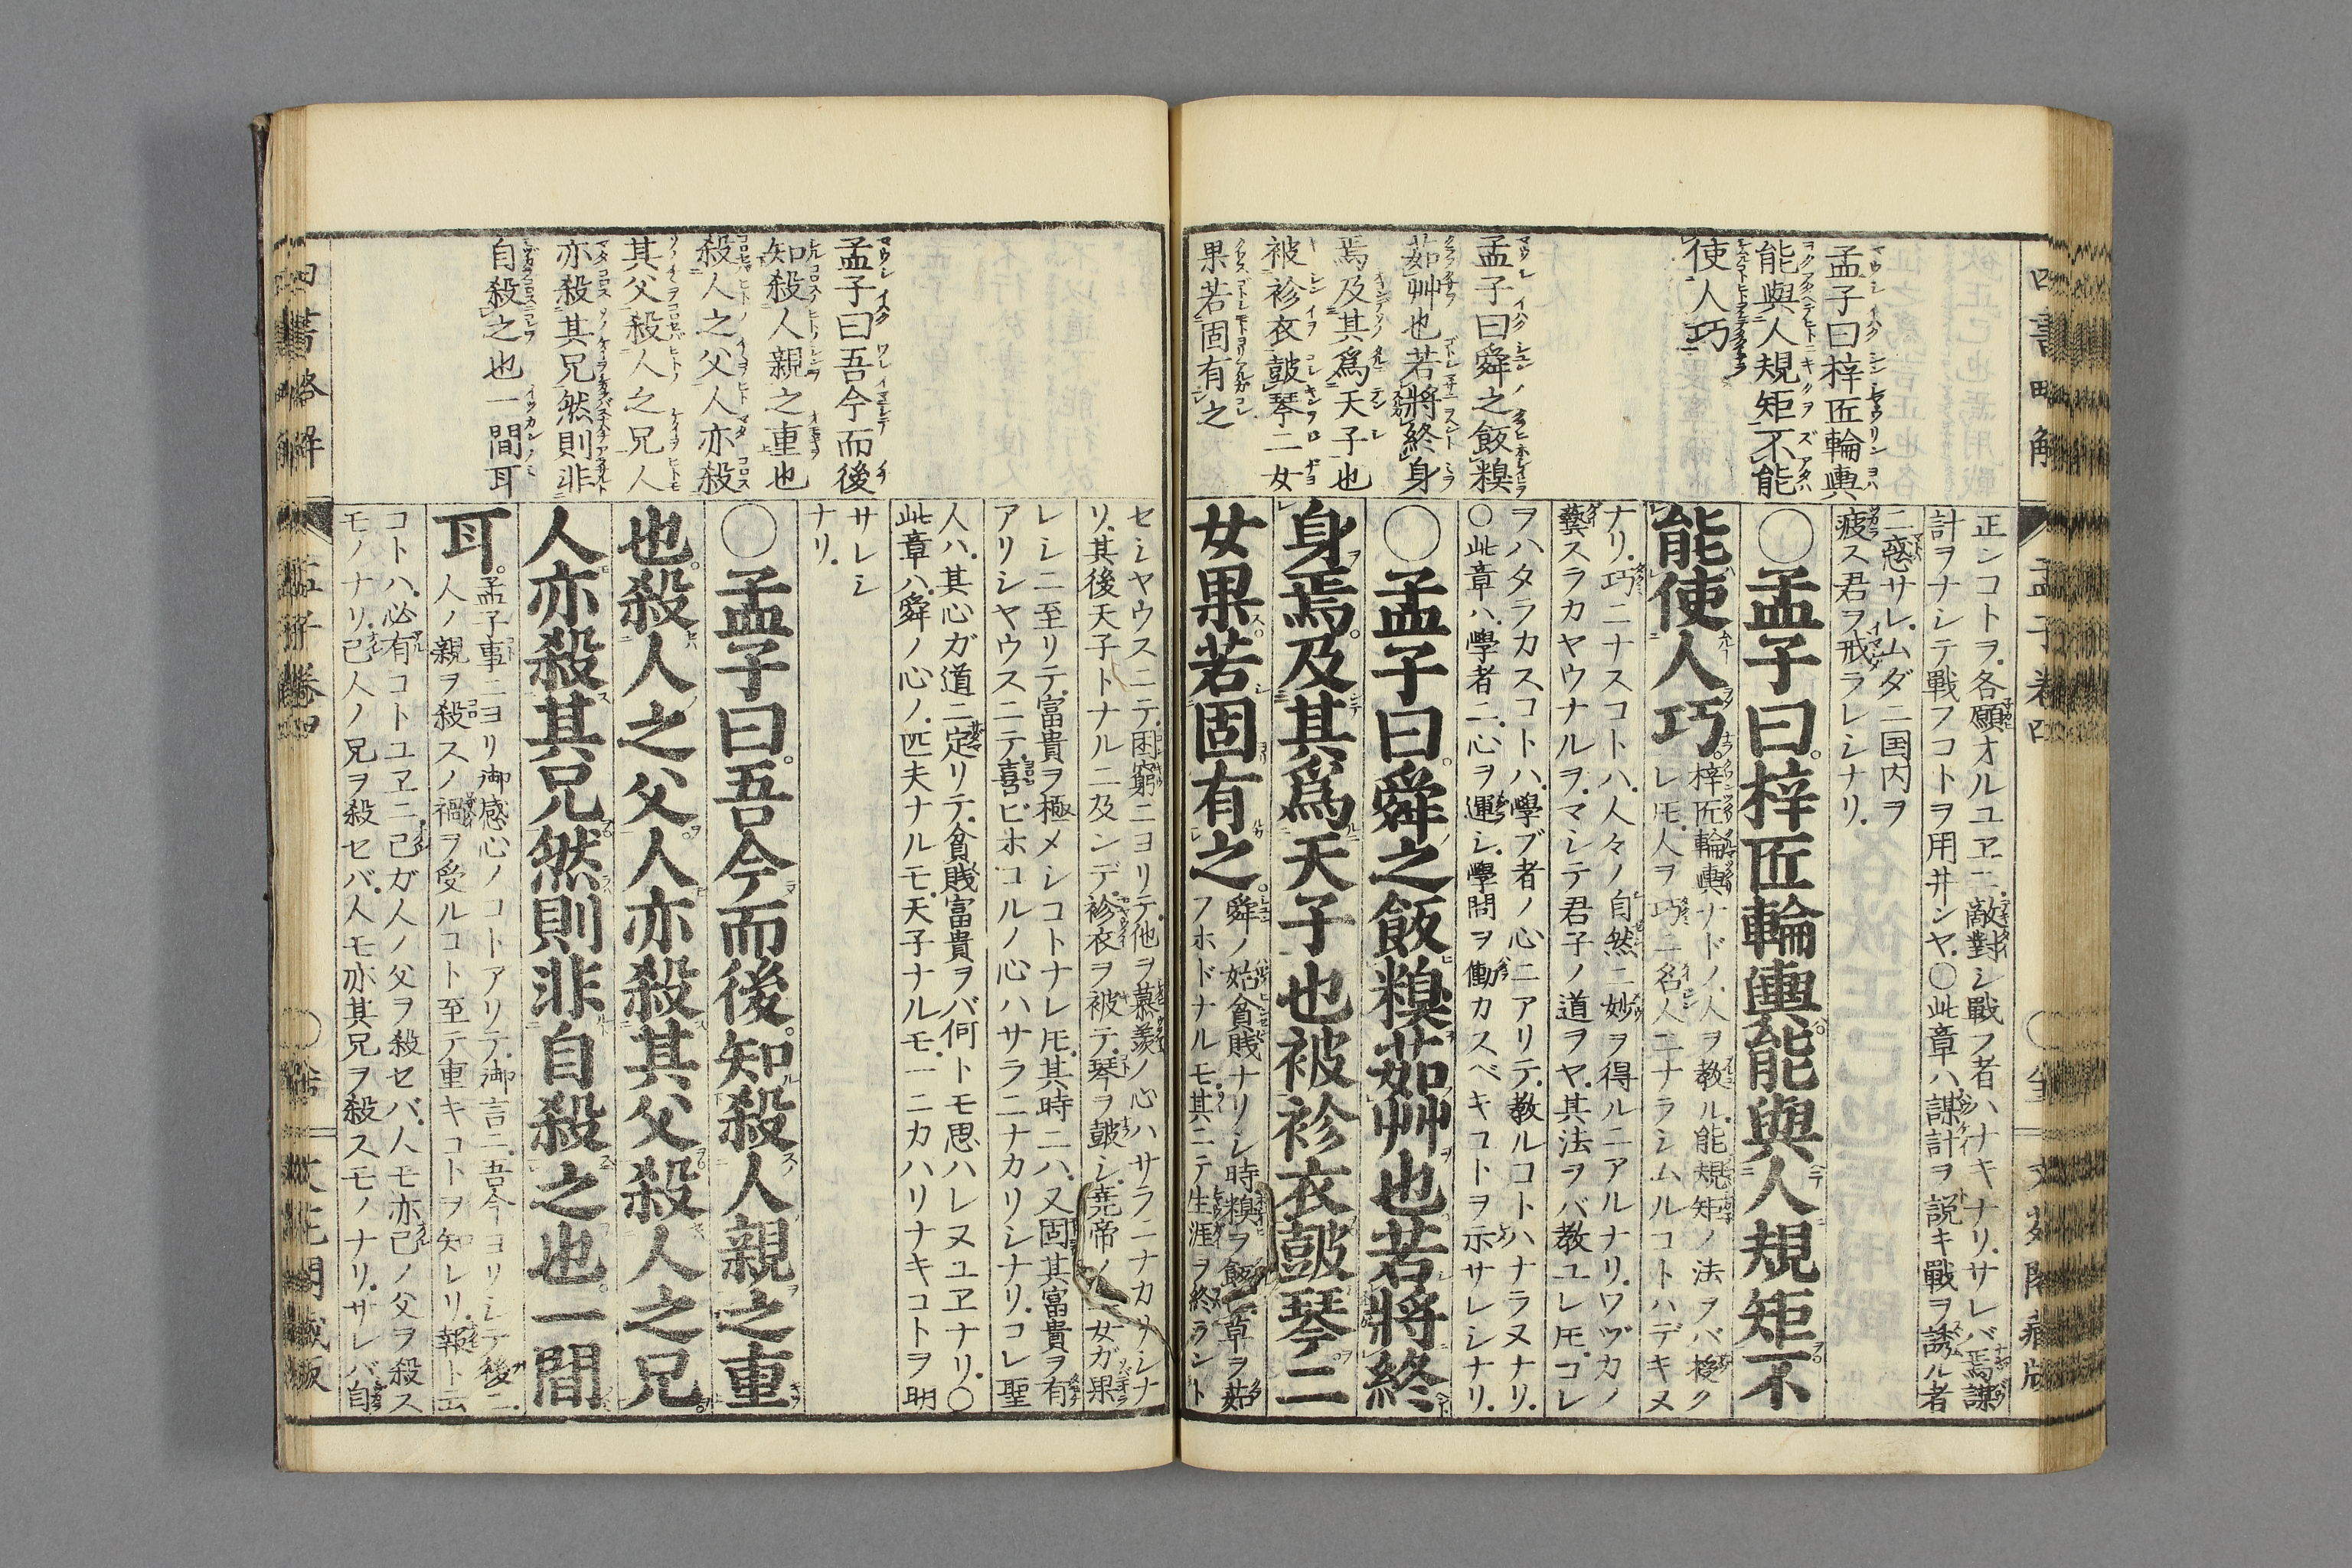 孟子曰梓匠輪輿
能與人規矩不能
使人巧
孟子曰舜之飯糗
茹艸也若將終身
焉及其爲天子也
被袗衣鼓琴二女
果若固有之
正ンコトヲ各願オルユヱニ敵對シ戰フ者ハナキナリサレバ焉謀
計ヲナシテ戰フコトヲ用井ンヤ○此章ハ謀計ヲ説キ戰ヲ誘ル者
ニ惑サレムダニ国内ヲ
疲ス君ヲ戒ラレシナリ
○孟子曰。梓匠輪輿能與人規矩不
能使人巧。
梓匠輪輿ナドノ人ヲ教ル能規矩ノ法ヲバ授ク
レ𪜈人ヲ巧ニ名人ニナラシムルコトハデキヌ
ナリ巧ニナスコトハ人々ノ自然ニ妙ヲ得ルニアルナリワヅカノ
藝スラカヤウナルヲマシテ君子ノ道ヲヤ其法ヲバ教ユレ𪜈コレ
ヲハタラカスコトハ學ブ者ノ心ニアリテ教ルコトハナラヌナリ
○此章ハ學者ニ心ヲ運シ學問ヲ働カスベキコトヲ示サレシナリ
○孟子曰。舜之飯糗茹艸也若將終
身焉。及其爲天子也被袗衣鼓琴二
女果若固有之。
舜ノ始貧賤ナリシ時糗ヲ飯シ草ヲ茹
フホドナルモ其ニテ生涯ヲ終ラント
四書略解
孟子卷四
セシヤウスニテ困窮ニヨリテ他ヲ慕羨ノ心ハサラニナカリシナ
リ其後天子トナルニ及ンデ袗衣ヲ被テ琴ヲ鼓シ堯帝ノ二女ガ果
レシニ至リテ富貴ヲ極メシコトナレ𪜈其時ニハ又固其富貴ヲ有
アリシヤウスニテ喜ビホコルノ心ハサラニナカリシナリコレ聖
人ハ其心ガ道ニ定リテ貧賤富貴ヲバ何トモ思ハレヌユヱナリ○
此章ハ舜ノ心ノ匹夫ナルモ天子ナルモ一ニカハリナキコトヲ明
サレシ
ナリ
孟子曰吾今而後
知殺人親之重也
殺人之父人亦殺
其父殺人之兄人
亦殺其兄然則非
自殺之也一間耳
○孟子曰。吾今而後。知殺人親之重
也。殺人之父人亦殺其父殺人之兄
人亦殺其兄然則非自殺之也。一間
耳。
孟子事ニヨリ御感心ノコトアリテ御言ニ吾今ヨリシテ後ニ
人ノ親ヲ殺スノ禍ヲ受ルコト至テ重キコトヲ知レリ報ト云
コトハ必有コトユヱニ己ガ人ノ父ヲ殺セバ人モ亦己ノ父ヲ殺ス
モノナリ己人ノ兄ヲ殺セバ人モ亦其兄ヲ殺スモノナリサレバ自
四書略解
孟子卷四